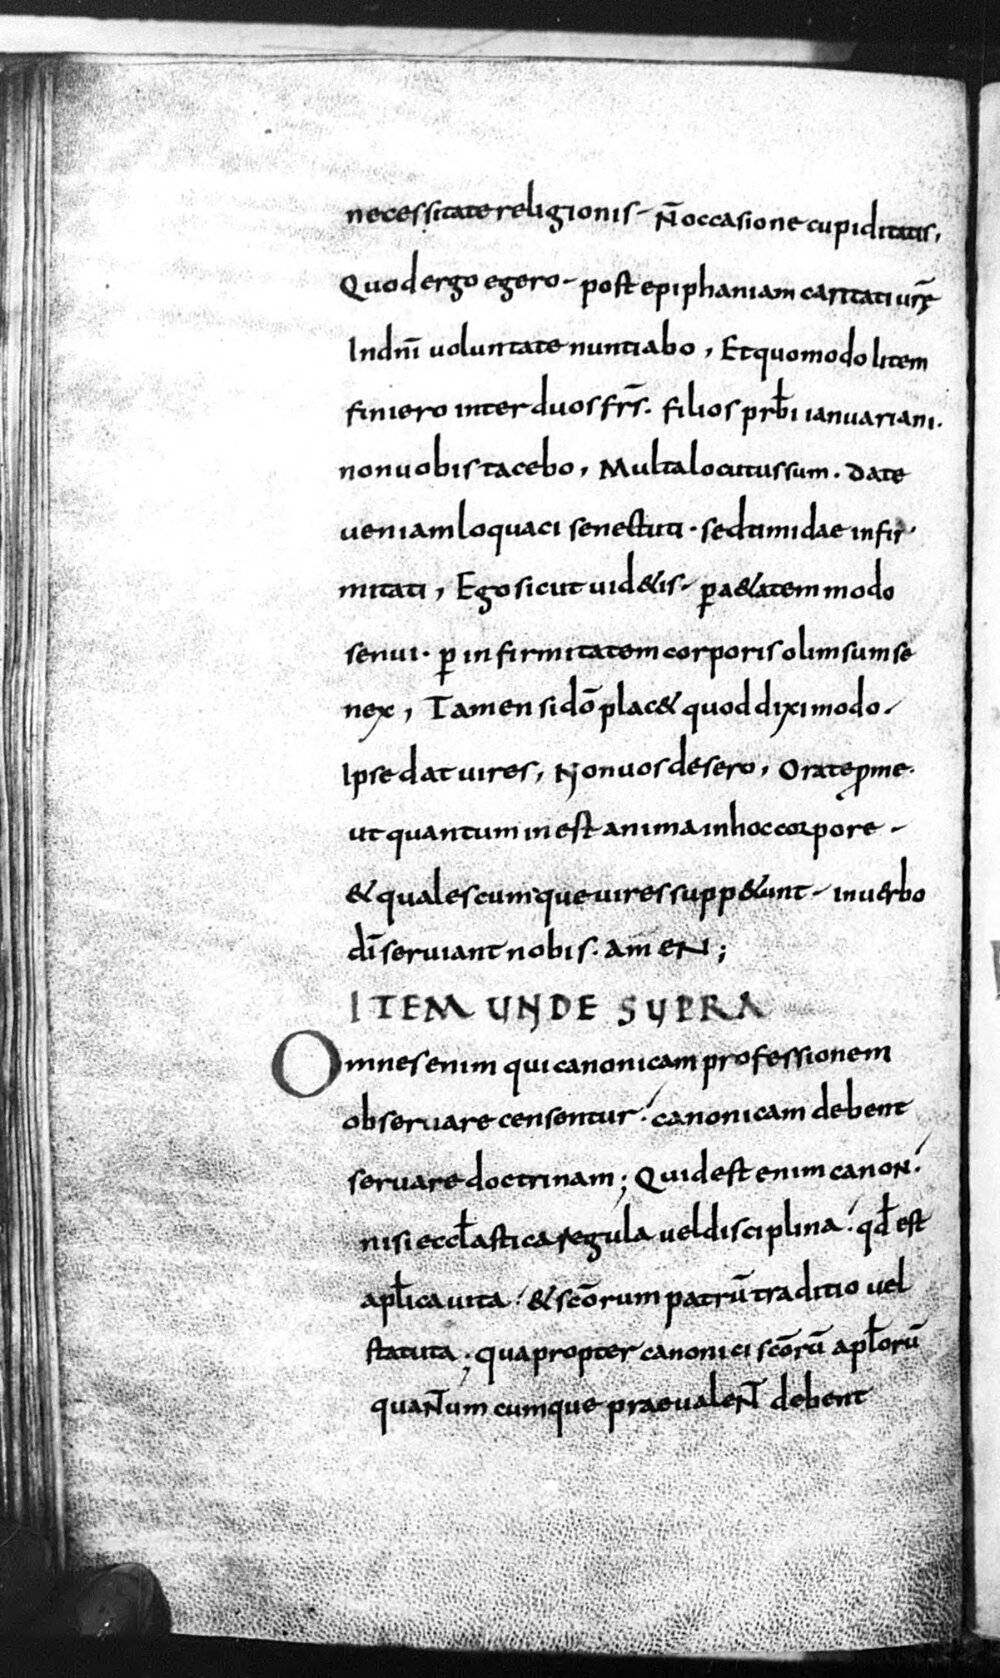 necessitate religionis- N̄ occasione cupiditatis,
Quod ergo egero- post epiphaniam caritati ur̄ę
In dn̄i uoluntate nuntiabo, Et quomodo litem
finiero inter duos fr̄s. filios prb̄i ianuariani.
non uobis tacebo, Multa locutus sum. date
ueniam loquaci senectuti· sed timidae infir
mitati, Ego sicut uid&is- ꝑ a&atem modo
senui· ꝑ infirmitatem corporis olim sum se
nex, Tamen si dō plac& quod dixi modo.
Ipse dat uires, Non uos desero, Orate ꝓ me.
ut quantum inest anima in hoc corpore -
& qualescumque uires supp&unt- in uerbo
dī seruiant nobis. amen;
ITEM UNDE SUPRA
Omnes enim qui canonicam professionem
obseruare censentur. canonicam debent
seruare doctrinam; Quid est enim canon.
nisi eccl̄astica regula uel disciplina. qd̄ est
apl̄ica uita. & scōrum patrū traditio uel
statuta; quapropter canonici scōrū apl̄orū
quaNTum cumque praeualeNT debent